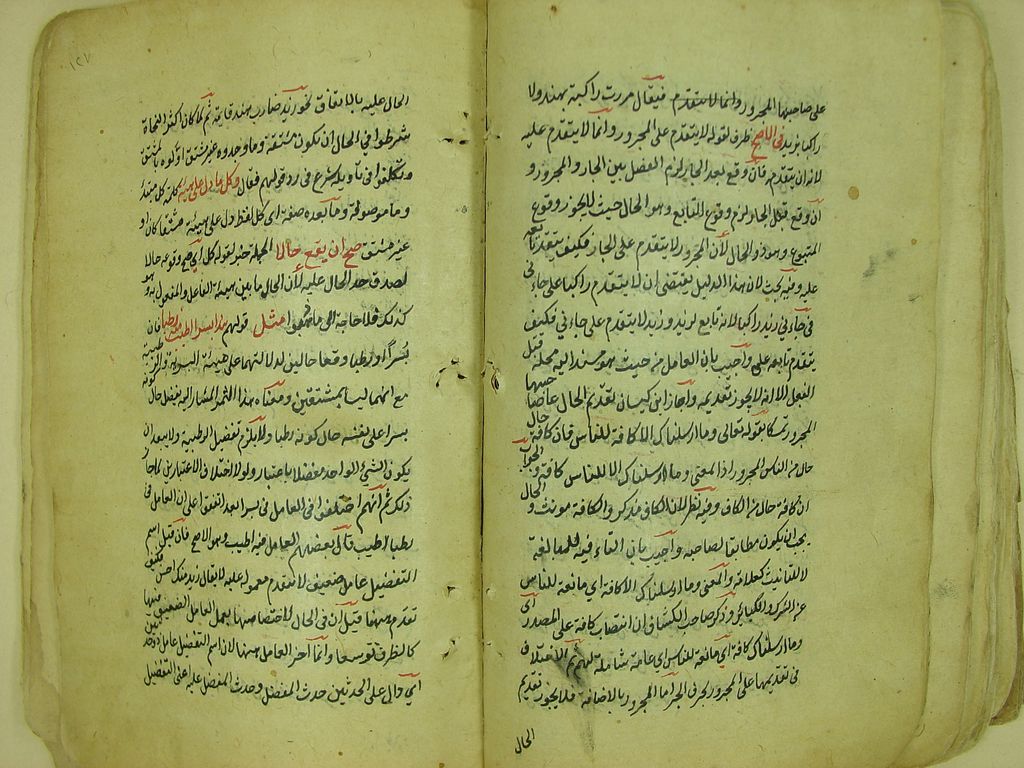 على صاحبها المجرور وانما لا تتقدم فيقال مررت راكبة بهند ولا
راكبا بزيد في الاصح ظرف لقوله لا يتقدم على المجرور وانما لا يتقدم عليه
لانه ان يتقدم فان وقع بعد الجار لزم الفصل بين الجار والمجرور و
ان وقع قبل الجار لزم وقوع التابع وهو الحال حيث لا يجوز وقوع
المتبوع وهو ذو الحال لأن المجرور لا يتقدم على الجار فكيف يتقدم تابعه
عليه وفيه بحث لان هذا الدليل يقتضى ان لا يتقدم راكبا على جاء
في جاءني زيد راكبا لانه تابع لزيد وزيد لا يتقدم على جاءني فكيف
يتقدم تابعه على واجيب بان العامل من حيث هو مسند اليه محله قبل
الفعل الا انه لا يجوز تقديمه واجاز ابن كيسان تقديم الحال على صاحبها
المجرور كما بقوله تعالى وما ارسلناك الا كافة للناس فان كافة حال
حال من الناس المجرور اذ المعنى وما ارسلناك الا للناس كافة والجواب
ان كافة حال من الكاف وفيه نظر لان الكاف مذكر والكافة مونث والحال
يجب ان يكون مطابقا لصاحبه واجيب بان التاء فيه للمبالغة
لا للتانيث كعلامة والمعنى وما ارسلناك الا كافة اي مانعة للناس
عن الشرك والكبائر وذكر صاحب الكشاف ان انتصاب كافة على المصدر اى
وما ارسلناك كافة اي مانعة للناس اي عامة شاملة لهم ثم الاختلاف
في تقديمها على المجرور بحرف الجر اما المجرور بالاضافة فلا يجوز تقديم
الحال
١٢٧
الحال عليه بالاتفاق نحو زيد ضارب هند قايمة ثم لما كان اكثر النحاة
شرطوا في الحال ان تكون مشتقة وما وجدوه غير مشتق اولوه بالمشتق
وتكلفوا في تاويله شرع في رد قولهم فقال وكل ما دل على هيئة الجملة كل مبتدا
وما موصوفة وما بعده صفة اى كل لفظ دل على هيئة مشتقا كان او
غير مشتق صح ان يقع حالا الجملة خبر لقوله كل اي صح وقوعه حالا
لصدق حد الحال عليه لأن الحال ما يبين هيئة الفاعل والمفعول به وهو
كذلك فلا حاجة الى ما تكلفوا مثل قولهم هذا بسرا اطيب منه رطبا فان
بسرا ورطبا وقعا حالين لدلالتهما على هيئة البسرية والرطبية
مع انهما ليسا بمشتقين ومعناه هذا التمر المشار اليه يفضل حال كونه
بسرا على نفسه حال كونه رطبا ولا يلزم تفضيل الرطبية ولا يبعد ان
يكون الشيء الواحد مفضلا باعتبار ولولا اختلاف الاعتبارين لما جاز
ذلك ثم انهم اختلفوا في العامل في بسرا بعد اتفقوا على ان العامل في
رطبا اطيب قال بعضهم العامل فيه اطيب وهو الاصح فان قيل اسم
التفضيل عامل ضعيف لا يتقدم معموله عليه لا يقال زيد منك احسن فكيف
تقدم ههنا قيل ان في الحال لاختصاصها بعمل العامل الضعيف فيها
كالظرف توسعا وانما اخر العامل ههنا لان اسم التفضيل عامل ذو حدثين
اي دال على الحدثين حدث المفضل وحدث المفضل عليه اعنى التفضيل